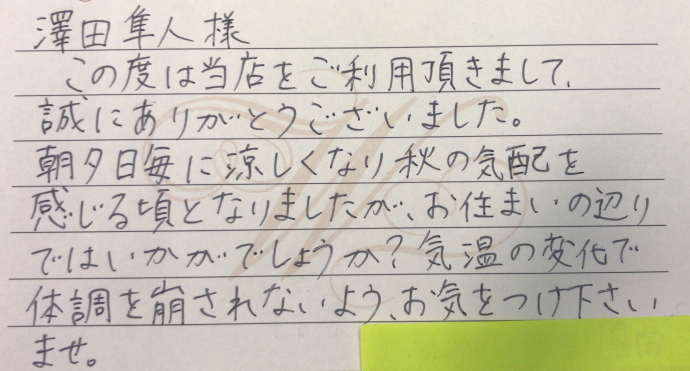 澤田隼人様
この度は当店をご利用頂きまして、
誠にありがとうございました。
朝夕日毎に涼しくなり秋の気配を
感じる頃となりましたが、お住まいの辺り
ではいかがでしょうか？気温の変化で
体調を崩されないよう、お気をつけ下さい
ませ。